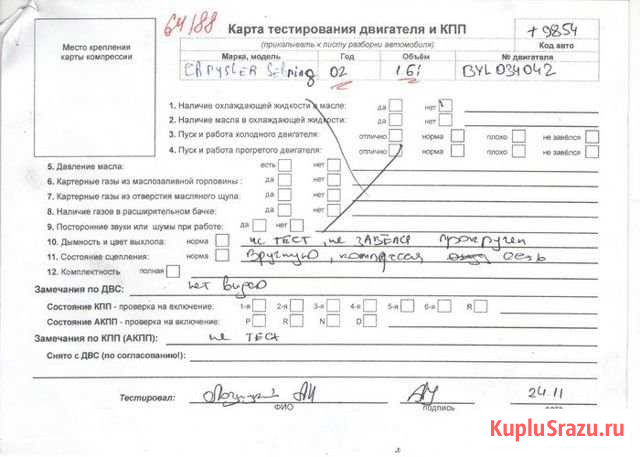 64/88
Карта тестирования двигателя и КПП
+9854
(прикалывать к листу разборки автомобиля)
Код авто
Место крепления
карты компрессии
Марка, модель Год Объём № двигателя
CHRYSLER Sebring 02 BYL034042
1. Наличие охлаждающей жидкости в масле: да нет
2. Наличие масла в охлаждающей жидкости: да нет
3. Пуск и работа холодного двигателя: отлично норма плохо не завёлся
4. Пуск и работа прогретого двигателя: отлично норма плохо не завёлся
5. Давление масла: есть нет
6. Картерные газы из маслозаливной горловины : да нет
7. Картерные газы из отверстия масляного щупа: да нет
8. Наличие газов в расширительном бачке: да нет
9. Посторонние звуки или шумы при работе: да нет
10. Дымность и цвет выхлопа: норма не ТЕСТ, не ЗАВЕЛСЯ прокручен
11. Состояние сцепления: норма вручную, компрессия есть
12. Комплектность полная
Замечания по ДВС: нет видео
Состояние КПП - проверка на включение: 1-я 2-я 3-я 4-я 5-я 6-я R
Состояние АКПП - проверка на включение: P R N D
Замечания по КПП (АКПП): не ТЕСТ
Снято с ДВС (по согласованию!):
Тестировал: 24.11
ФИО подпись дата
KupluSrazu.ru